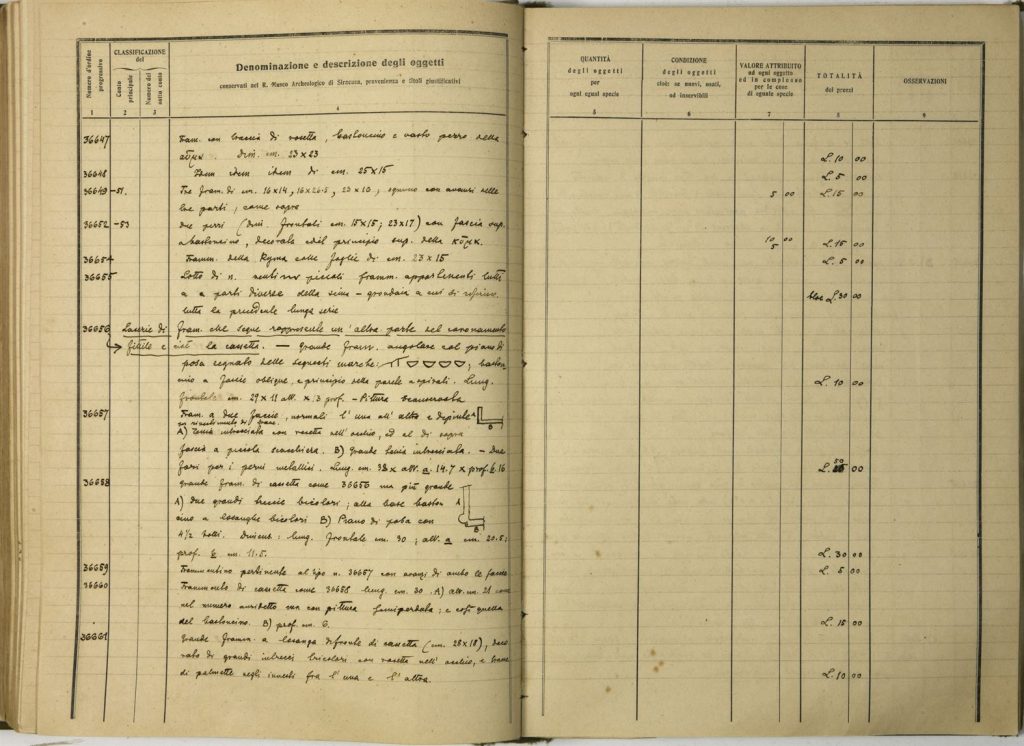 Numero d'ordine progressivo
CLASSIFICAZIONE del
Conto principale
Numero del sotto conto
Denominazione e descrizione degli oggetti
conservati nel R. Museo Archeologico di Siracusa, provenienza e titoli giustificativi
QUANTITÀ degli oggetti per ogni egual specie
CONDIZIONE degli oggetti cioè: se nuovi, usati, ed inservibili
VALORE ATTRIBUITO ad ogni oggetto ed in complesso per le cose di eguale specie
TOTALITÀ dei prezzi
OSSERVAZIONI
1 2 3 4 5 6 7 8 9
36647 Fram. con traccia di rosetta, bastoncino e vasto pezzo della
κῦμα. Dim. cm. 23 x 23 L. 10 00
36648 Idem idem idem di cm. 25 x 15 L. 5 00
36649 -51. Tre fram. di cm. 16 x 14, 16 x 26.5, 20 x 10; ognuno con avanzi nelle
due parti, come sopra 5 00 L. 15 00
36652 -53 Due pezzi (dim. frontali cm. 15 x 15; 23 x 17) con fascia sup.
a bastoncino, decorata e del principio sup. della κῦμα. 10 00 5 L. 15 00
36654 Framm. della κyma colle foglie di cm. 23 x 15 L. 5 00
36655 Lotto di n. piccoli framm. appartenenti tutti
a parti diverse della sima - grondaia a cui si riferisce
tutta la precedente lunga serie bloc L. 30 00
36656 La serie di fram. che segue rappresenta un'altra parte del coronamento
fittile e cioè la cassetta. — Grande framm. angolare col piano di
posa segnato delle seguenti marche: ; baston
cino a fascie oblique, e principio della parete a spirali. Lung. L. 10 00
frontale cm. 29 x 11 alt. x 13 prof. - Pittura
36657 Fram. a due faccie, normali l'una all'altra e dipinte A B
A) Tenia intrecciata con rosetta nell'occhio, ed al di sopra
fascia a piccola scacchiera. B) Grande tenia intrecciata. - Due
fori per i perni metallici. Lung. cm. 38 x alt. a. 14.7 x prof. b. 16 L. 50 00
36658 Grande fram. di cassetta come 36656 ma più grande
A) due grandi treccie bicolori; alla base baston A
cino a losanghe bicolori B) Piano di posa con B
4 1/2 Dimens: lung. frontale cm. 30; alt. a cm. 20.5;
prof. b cm. 11.5. L. 30 00
36659 Frammentino pertinente al tipo n. 36657 con avanzi di ambo le faccie L. 5 00
36660 Frammento di cassetta come 36658 lung. cm. 30. A) alt. cm. 21 come
nel numero anzidetto ma con pittura semiperduta; e così quella
del bastoncino. B) prof. cm. 6. L. 15 00
36661 Grande framm. a losanga di fronte di cassetta (cm. 28 x 18), deco
rato di grandi intrecci bicolori con rosetta nell'occhio, e tracce
di palmette negli innesti fra l'una e l'altra. L. 10 00